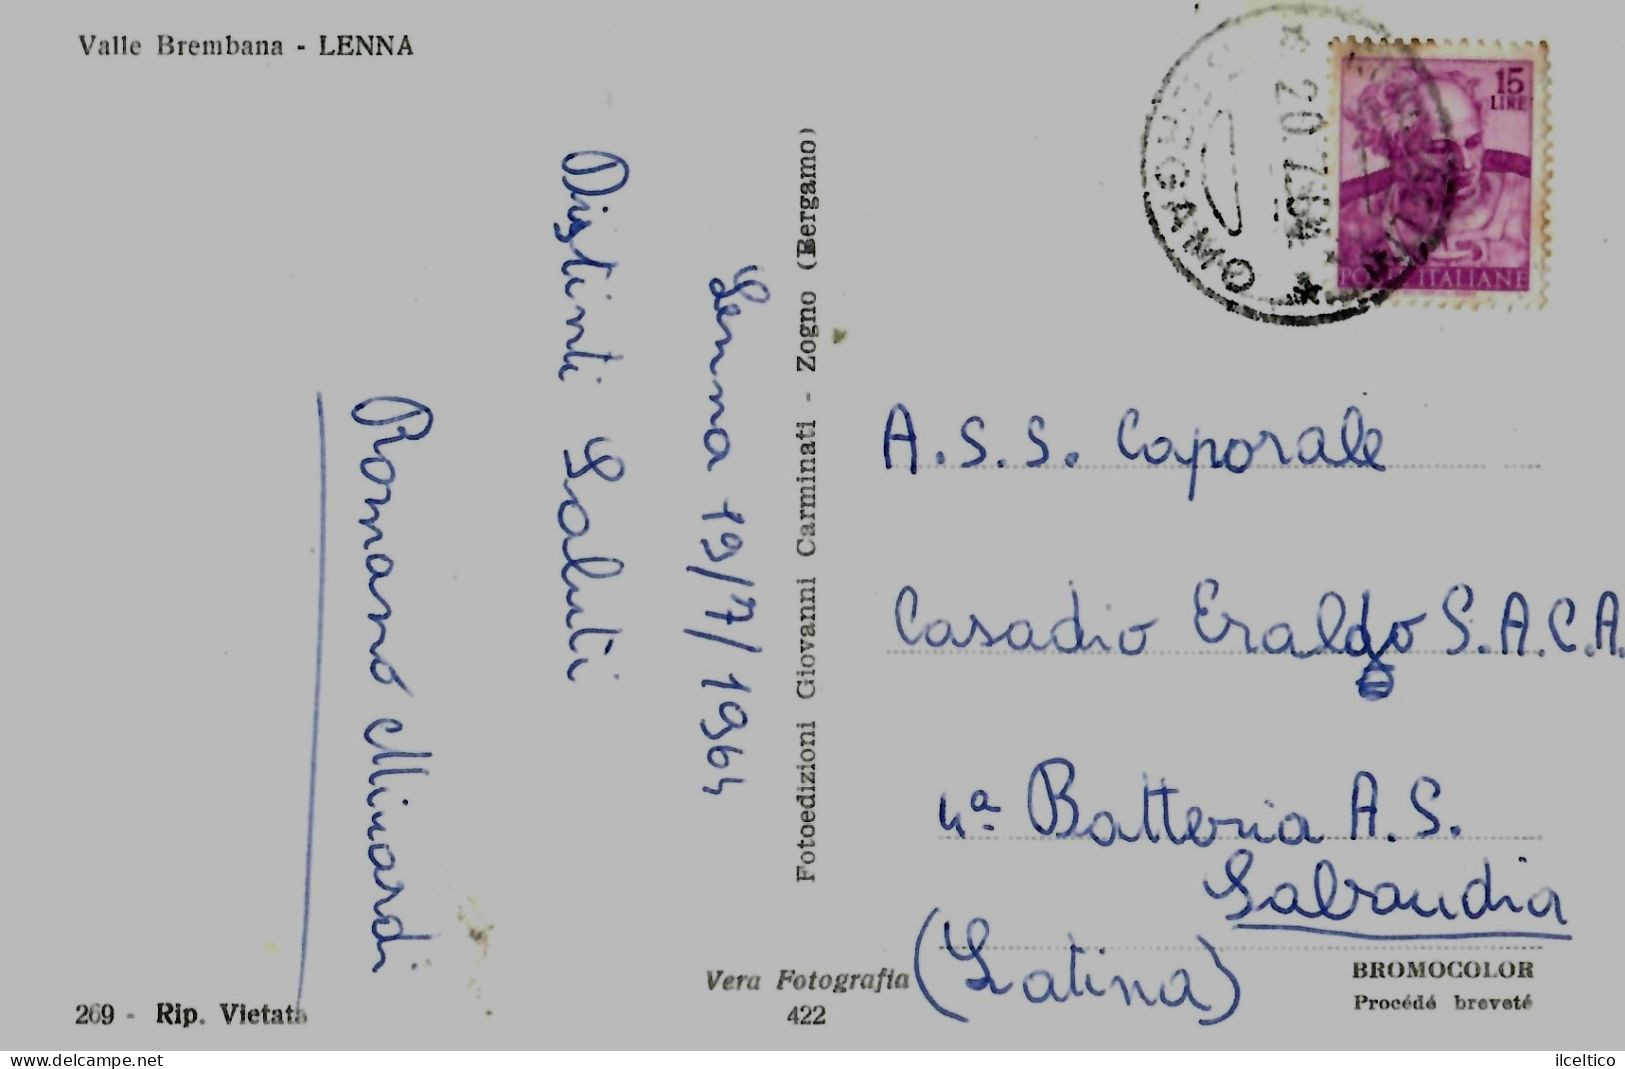 Valle Brembana - LENNA
Lenna 19/7/1964
Distinti Saluti
Romano Minardi
Fotoedizioni Giovanni Carminati - Zogno (Bergamo)
BERGAMO
* 20.7.64 *
15
LIRE
POSTE ITALIANE
A.S.S. Caporale
Casadio Eraldo S.A.C.A.
4ª Batteria A.S.
Sabaudia
(Latina)
269 - Rip. Vietata
Vera Fotografia
422
BROMOCOLOR
Procédé breveté
delcampe.net
ilceltico